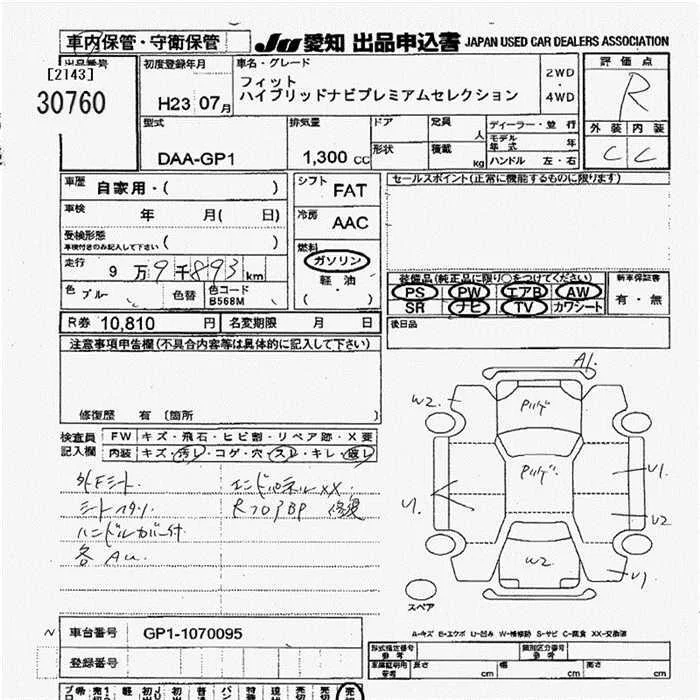 車内保管・守衛保管
JU 愛知 出品申込書 JAPAN USED CAR DEALERS ASSOCIATION
出品番号
[2143]
30760
初度登録年月
H23 07月
車名・グレード
フィット
ハイブリッドナビプレミアムセレクション
2WD
・
4WD
評価点
R
外装 内装
C C
型式
DAA-GP1
排気量
1,300 CC
ドア
形状
定員 人
積載 kg
ディーラー・並行
モデル年式 年
ハンドル 左・右
車歴 自家用・( )
車検 年 月( 日)
受検形態
車検付きのみ記入して下さい ( )
走行 9万9千893km
色 ブルー 色替 色コード B568M
シフト FAT
冷房 AAC
燃料
ガソリン
軽油
( )
セールスポイント(正常に機能するものに限ります)
装備品(純正品に限り○をつけてください)
PS PW エアB AW
SR ナビ TV カワシート
新車保証書
有・無
後日品
R券 10,810 円 名変期限 月 日
注意事項申告欄(不具合内容等は具体的に記入して下さい)
修復歴 有 〔箇所 〕
検査員記入欄
FW キズ・飛石・ヒビ割・リペア跡・X要
内装 キズ・汚レ・コゲ・穴・スレ・キレ・破レ
シート
ハンドルカバー付
各AU.
エンドパネルXX.
修復
A1.
W2.
U1
U2
U1
W2
スペア
A-キズ E-エクボ U-凹み W-補修跡 S-サビ C-腐食 XX-交換済
車台番号 GP1-1070095
登録番号
型式指定番号 参考
類別区分番号 参考
車庫証明用 参考 長さ cm 幅 cm 高さ cm